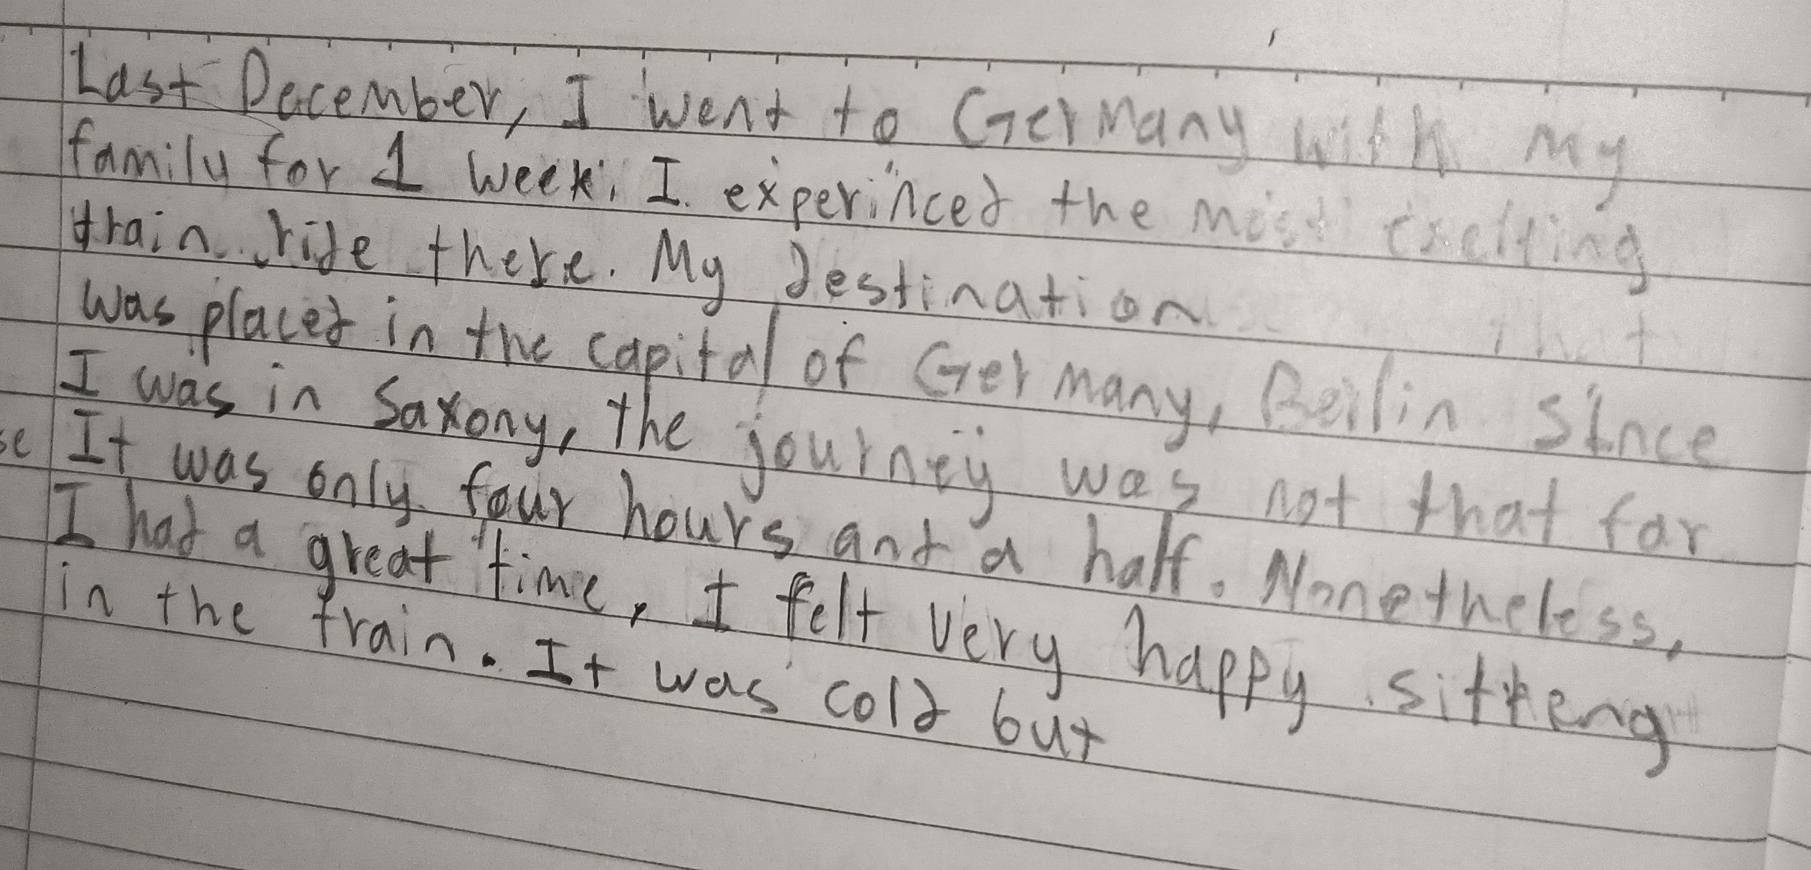 Last December, I went to Germany with my
family for 1 week. I experinced the most exciting
train ride there. My destination that
was placed in the capital of Germany, Berlin since
I was in Saxony, the journey was not that far
se It was only four hours and a half. Nonetheless,
I had a great time, I felt very happy sitteng
in the train. It was cold but